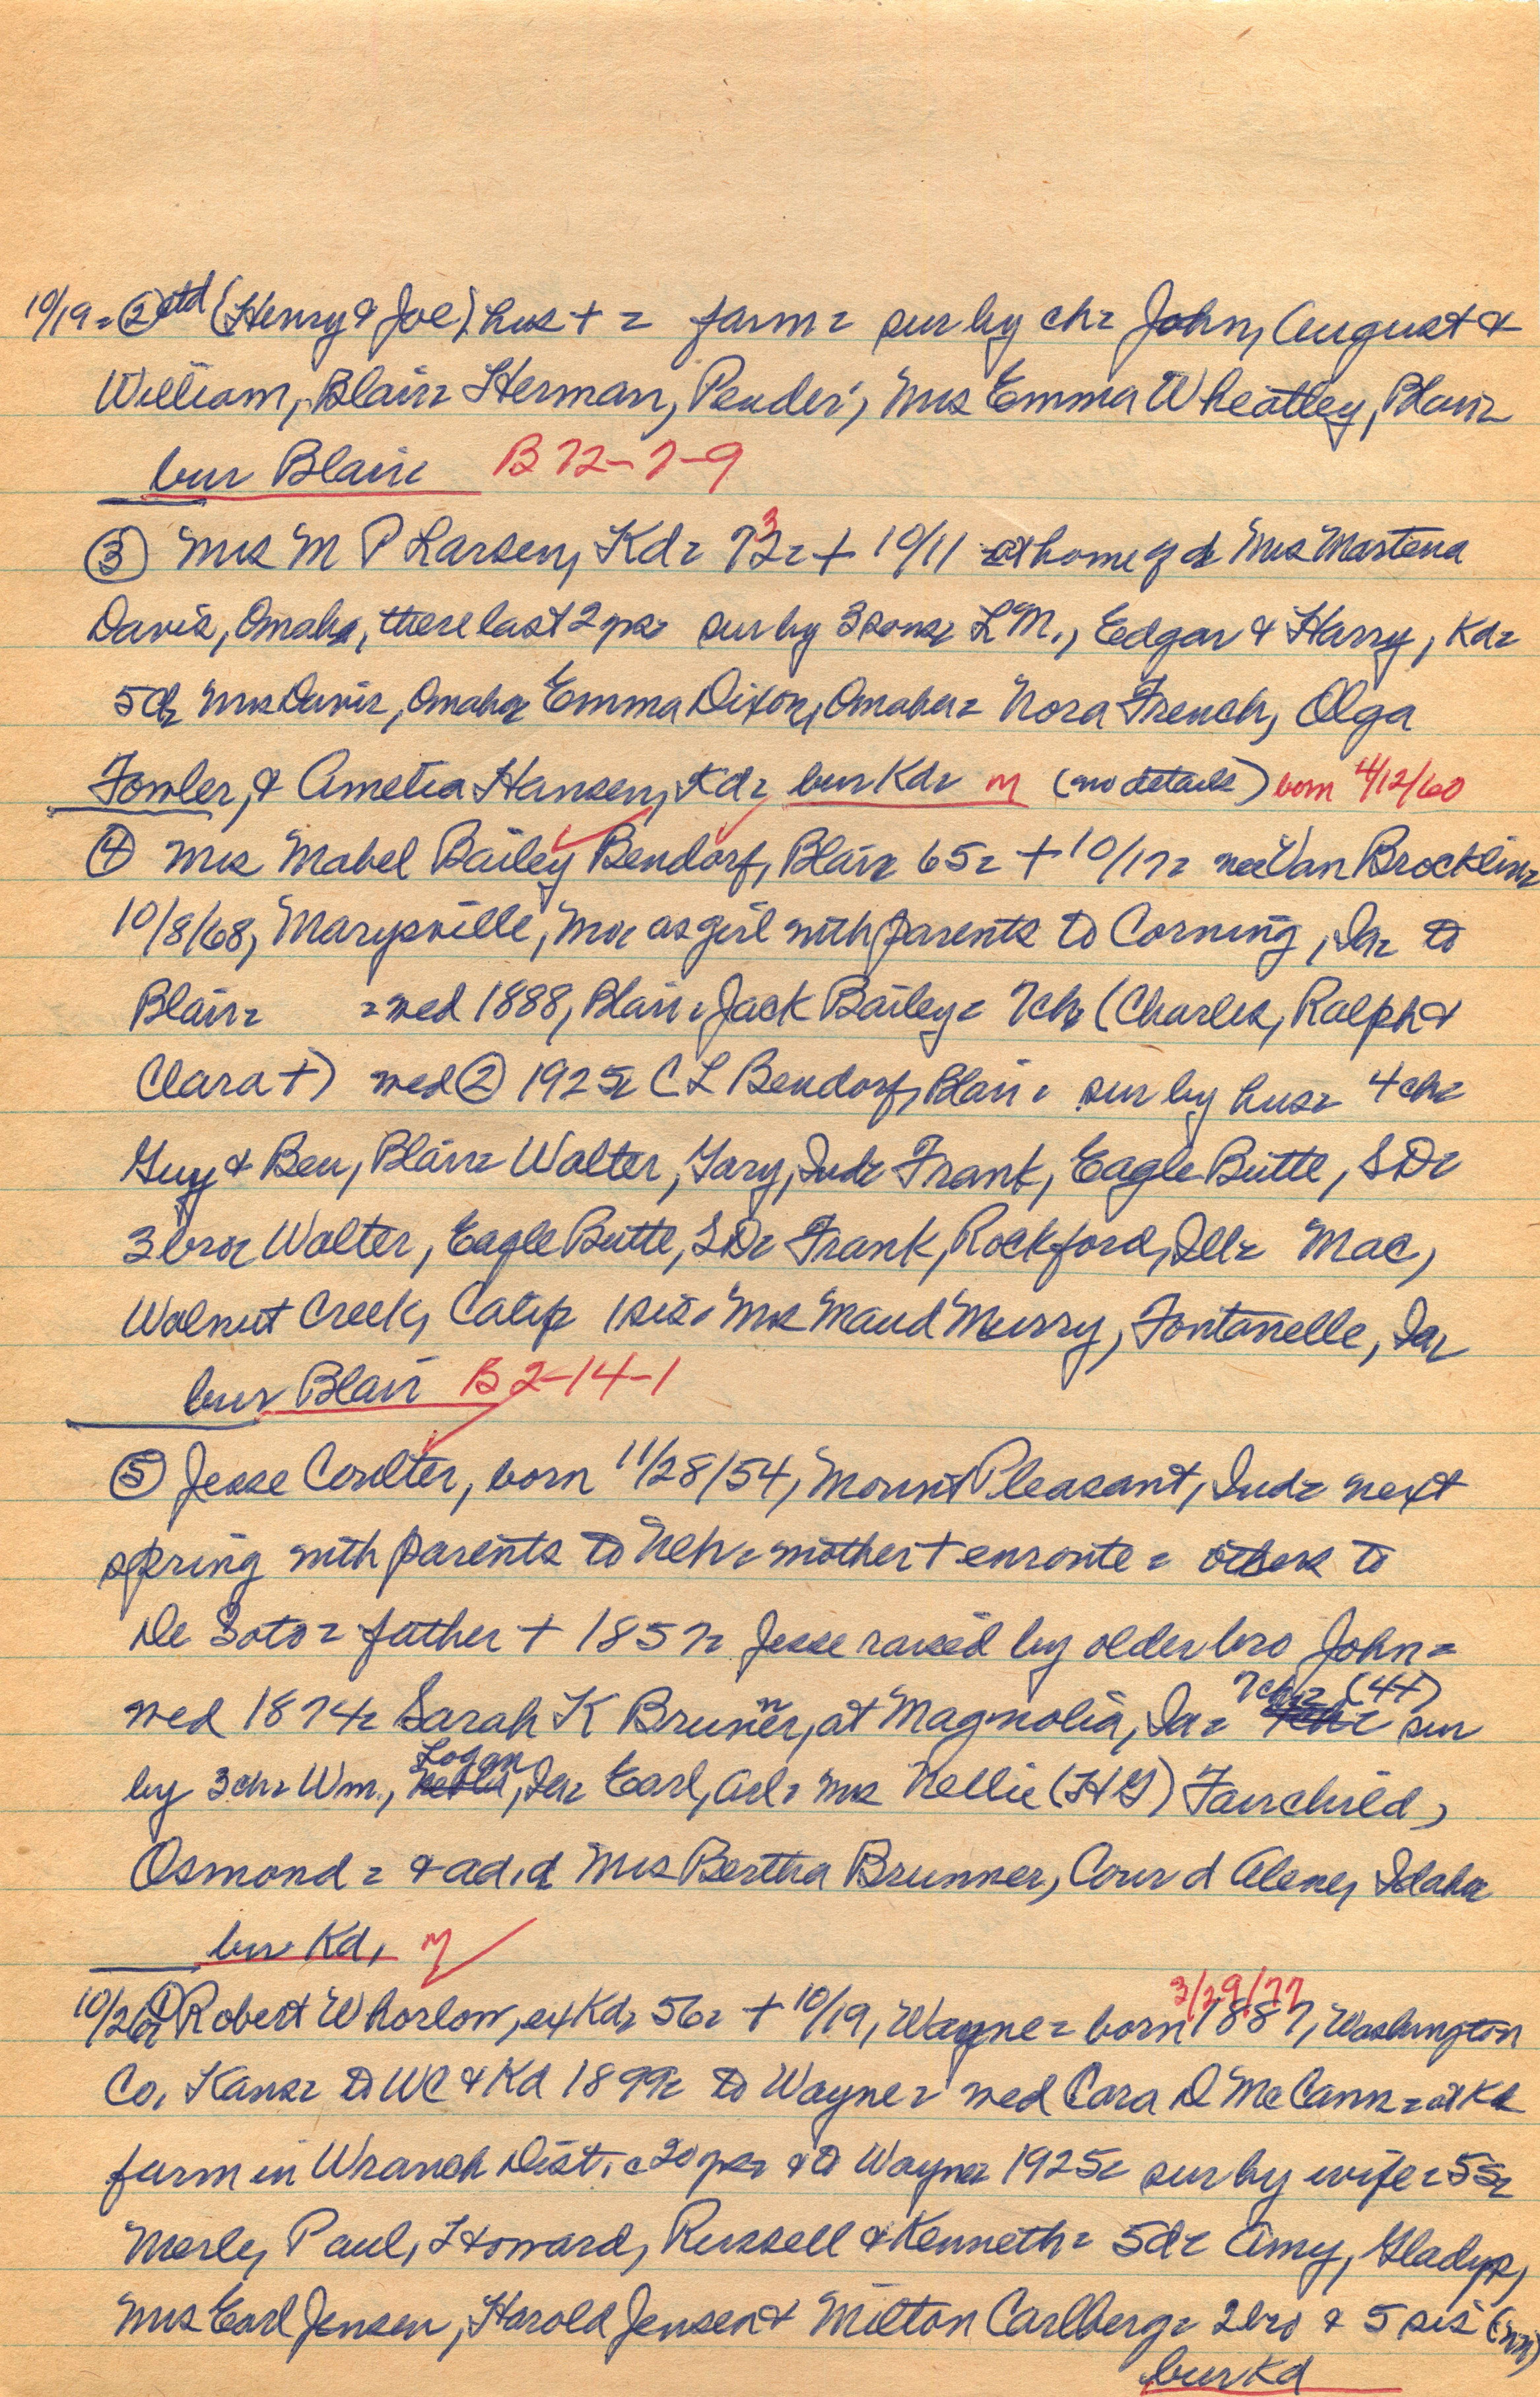 10/19 = ② ctd (Henry & Joe). hus + = farm = sur by ch = John, August &
William, Blair = Herman, Pender, Mrs Emma Wheatley, Blair =
bur Blair B 72-7-9
③ Mrs M P Larsen, Kd = 73 = + 10/11 at home of d Mrs Martena
Davis, Omaha, there last 2 yrs = sur by 3 sons = L M., Edgar & Harry, Kd =
5 d = Mrs Davis, Omaha = Emma Dixon, Omaha = Nora French, Olga
Fowler, & Amelia Hansen, Kd = bur Kd = M (no details) born 4/12/60
④ Mrs Mabel Bailey Bendorf, Blair 65 = + 10/17 = nee Van Brocklin =
10/8/68, Marysville, Mo = as girl with parents to Corning, Ia = to
Blair = = wed 1888, Blair = Jack Bailey = 7 ch (Charles, Ralph &
Clara +) wed ② 1925 = C L Bendorf, Blair = sur by hus = 4 ch =
Guy & Ben, Blair = Walter, Gary, Ind = Frank, Eagle Butte, S D =
3 bro = Walter, Eagle Butte, S D = Frank, Rockford, Ill = Mac,
Walnut Creek, Calif = 1 sis = Mrs Maud Murry, Fontanelle, Ia =
bur Blair B 2-14-1
⑤ Jesse Coulter, born 11/28/54, Mount Pleasant, Ind = next
spring with parents to Neb = mother + enroute = others to
De Soto = father + 1857 = Jesse raised by older bro John =
7 ch = (4+)
wed 1874 = Sarah K Bruner, at Magnolia, Ia = sur
Logan
by 3 ch = Wm., Ia = Earl, Ark = Mrs Nellie (H G) Fairchild,
Osmond = & ad. d Mrs Bertha Brunner, Cour d Alene, Idaho =
bur Kd, M
3/29/77
10/26 = ① Robert Whorlow, ex Kd = 56 = + 10/19, Wayne = born 1887, Washington
Co, Kans = to WC & Kd 1899 = to Wayne = wed Cara D McCann = at Kd
farm in Wranch Dist. c 20 yrs = & to Wayne 1925 = sur by wife = 5 s =
Merle, Paul, Howard, Russell & Kenneth = 5 d = Amy, Gladys,
Mrs Earl Jensen, Harold Jensen & Milton Carlberg = 2 bro & 5 sis (nn)
bur Kd